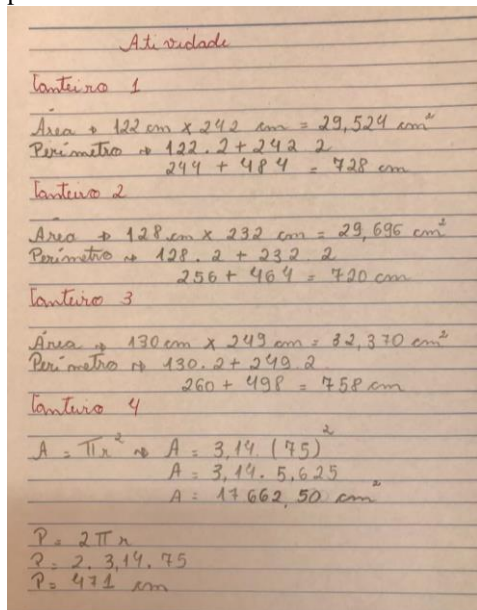 Atividade
Canteiro 1
Área → 122 cm x 242 cm = 29,524 cm²
Perímetro → 122.2 + 242 2
244 + 484 = 728 cm
Canteiro 2
Área → 128 cm x 232 cm = 29,696 cm²
Perímetro → 128.2 + 232.2
256 + 464 = 720 cm
Canteiro 3
Área → 130 cm x 249 cm = 32,370 cm²
Perímetro → 130.2 + 249.2
260 + 498 = 758 cm
Canteiro 4
A = πr² → A = 3,14.(75)²
A = 3,14.5,625
A = 17 662,50 cm²
P = 2πr
P = 2.3,14.75
P = 471 cm